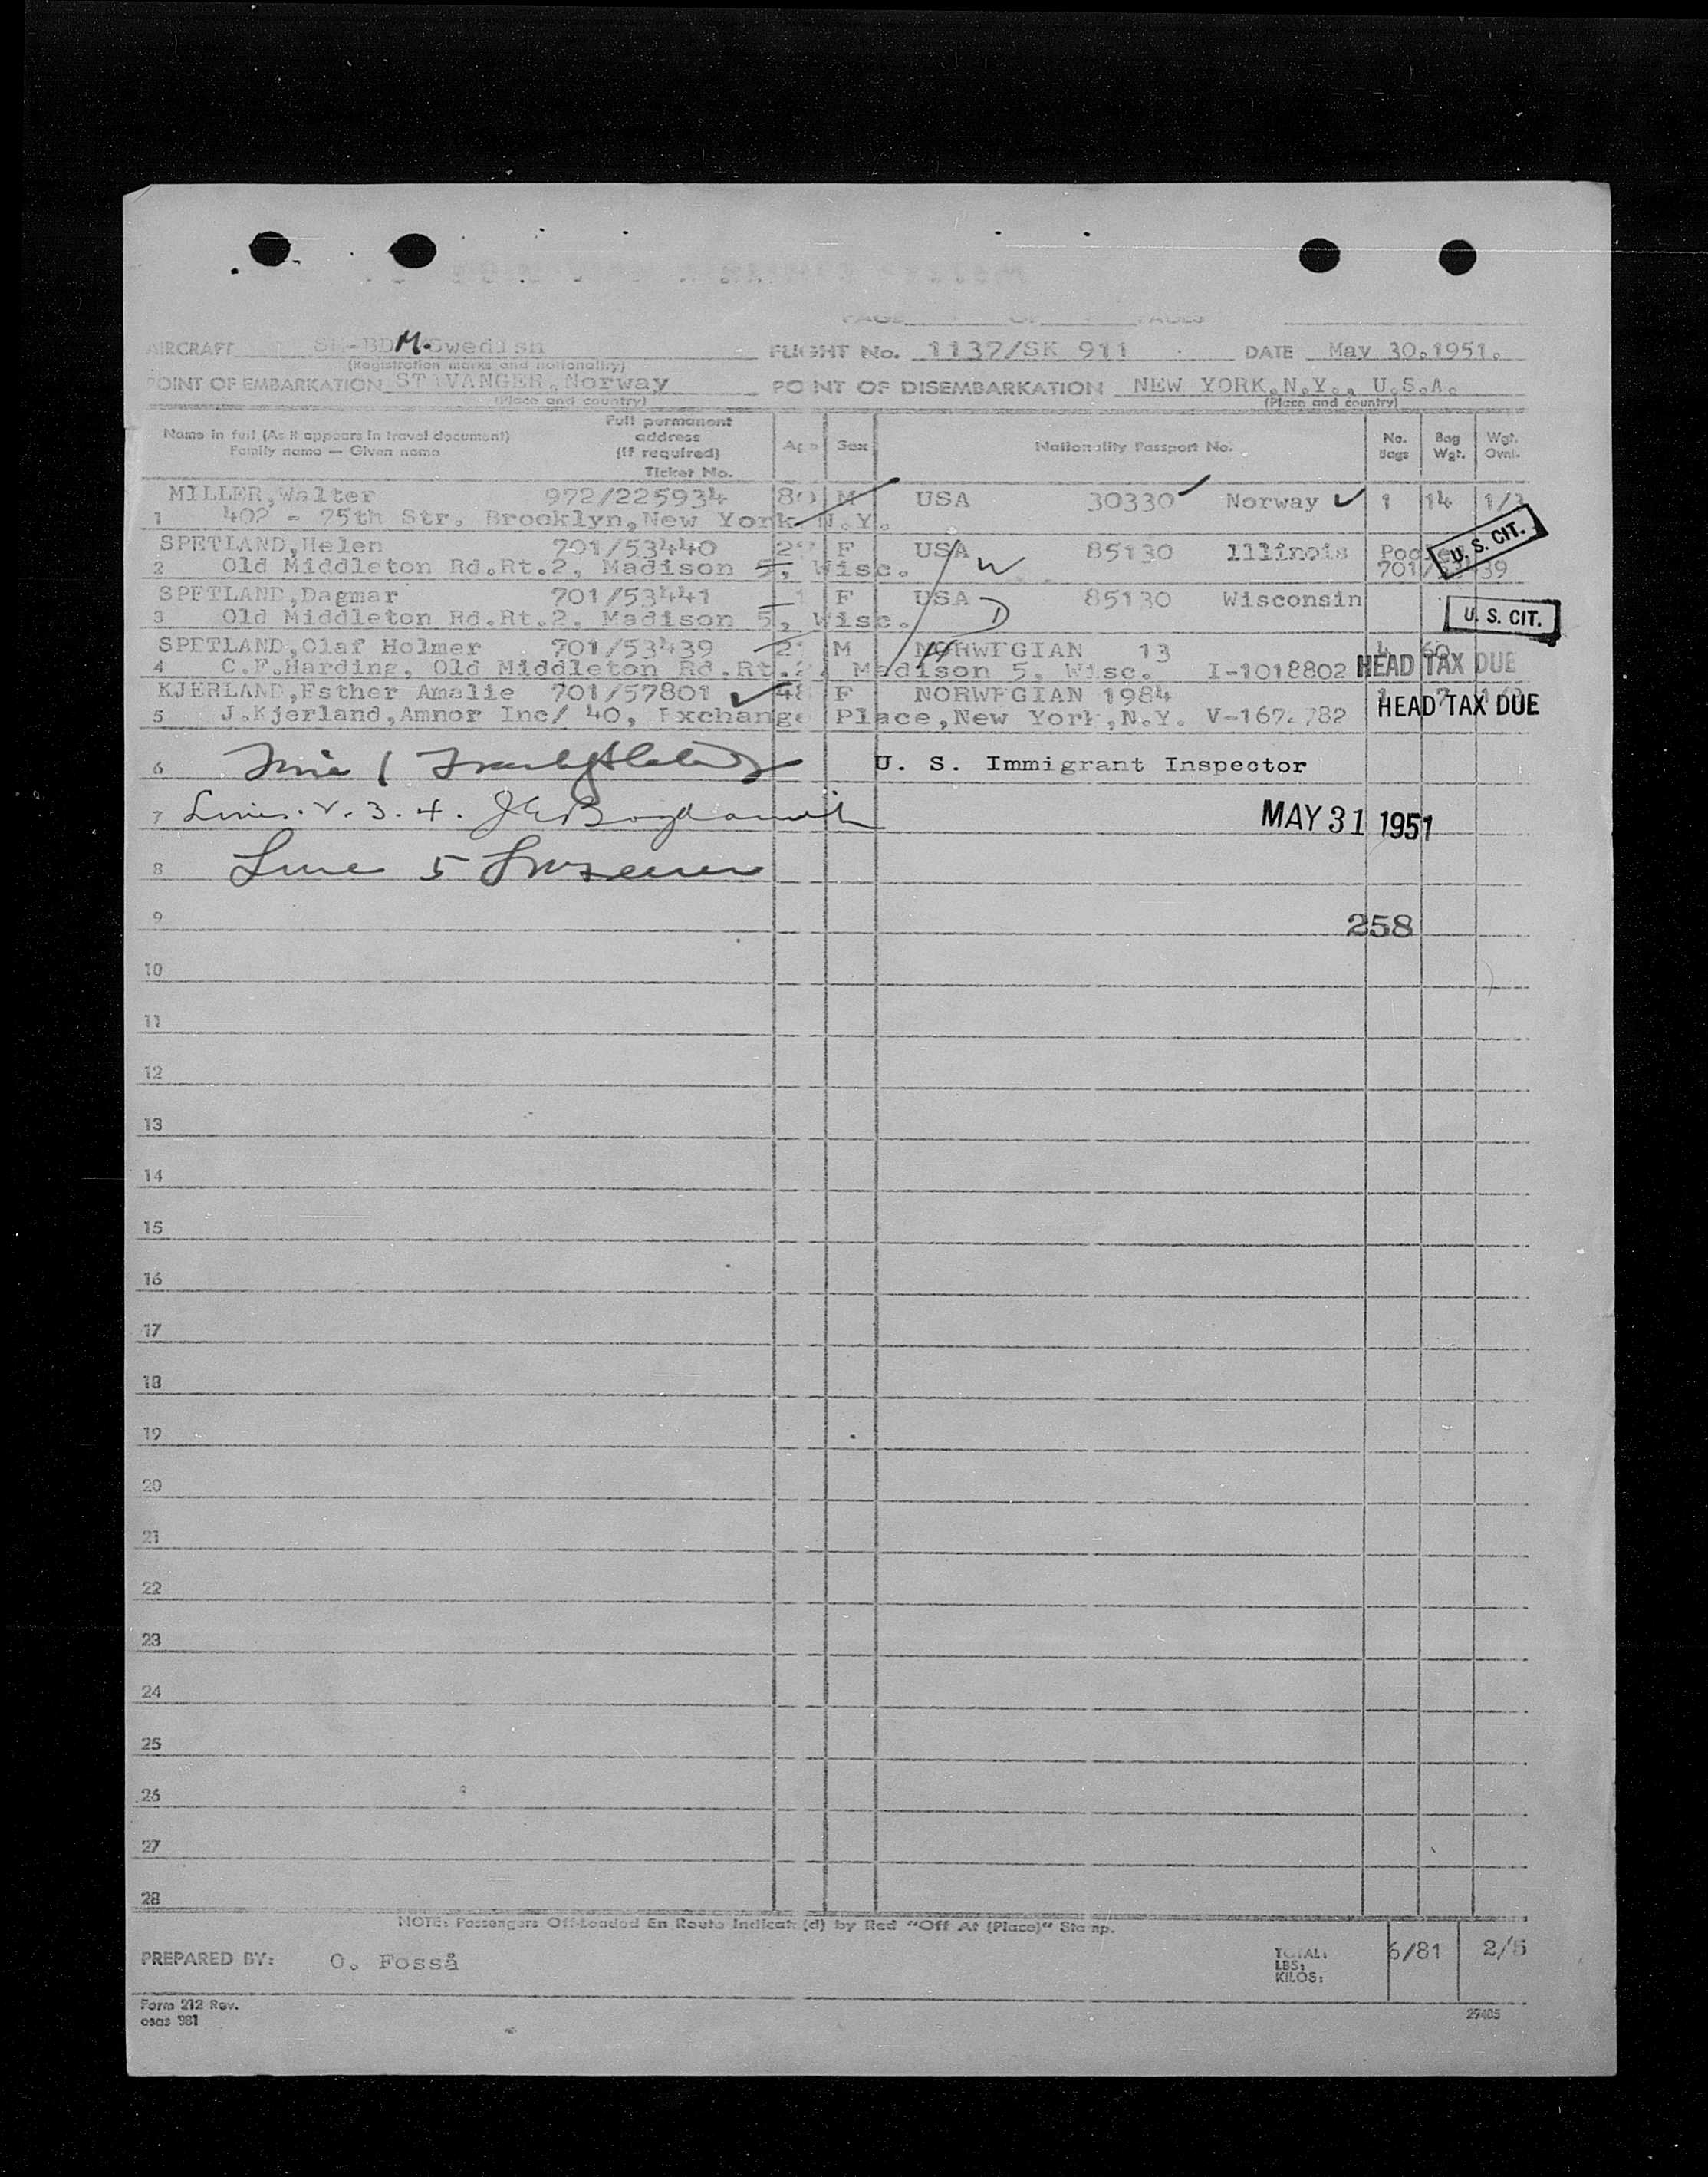 AIRCRAFT SE-BDM. Swedish FLIGHT No. 1137/SK 911 DATE May 30.1951.
(Registration marks and nationality)
POINT OF EMBARKATION STAVANGER, Norway POINT OF DISEMBARKATION NEW YORK,N.Y., U.S.A.
(Place and country) (Place and country)
Name in full (As it appears in travel document)
Family name — Given name
Full permanent
address
(if required)
Ticket No.
Age Sex Nationality Passport No. No. Bags Bag Wgt. Wgt. Ovnt.
MILLER,Walter 972/225934 80 M USA 30330 Norway 1 14 1/3
1 402 - 75th Str. Brooklyn,New York N.Y.
SPETLAND,Helen 701/53440 F USA 85130 Illinois
2 Old Middleton Rd.Rt.2, Madison 5, Wisc. U. S. CIT.
SPETLAND,Dagmar 701/53441 1 F USA 85130 Wisconsin
3 Old Middleton Rd.Rt.2. Madison 5, Wisc. U. S. CIT.
SPETLAND,Olaf Holmer 701/53439 M NORWEGIAN 13 4 60
4 C.F.Harding, Old Middleton Rd.Rt.2, Madison 5, Wisc. I-1018802 HEAD TAX DUE
KJERLAND,Esther Amalie 701/57801 48 F NORWEGIAN 1984 1 7
5 J.Kjerland,Amnor Inc/ 40, Exchange Place,New York,N.Y. HEAD TAX DUE
6 Line 1 U. S. Immigrant Inspector
7 Lines. 2. 3. 4. MAY 31 1951
8 Line 5
9 258
10
11
12
13
14
15
16
17
18
19
20
21
22
23
24
25
26
27
28
NOTE: Passengers Off-Loaded En Route Indicate(d) by Red "Off At (Place)" Stamp.
PREPARED BY: O. Fosså TOTAL: LBS: KILOS: 6/81 2/5
Form 212 Rev.
osas 981 29405